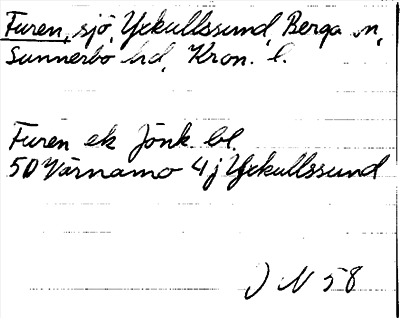 Furen, sjö, Yxkullssund, Berga sn,
Sunnerbo hd, Kron. l.
Furen ek Jönk. bl.
5D Värnamo 4j Yxkullssund
J N 58